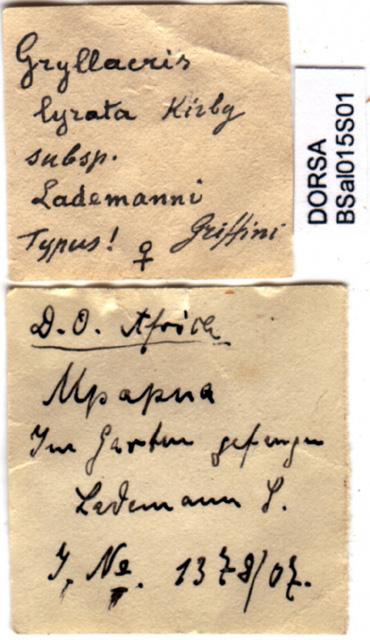 Gryllacris
lyrata Kirby
subsp.
Lademanni
Typus! ♀ Griffini
DORSA
BSal015S01
D. O. Africa
Mpapua
Im Garten gefangen
Lademann S.
J. No. 1378/07.